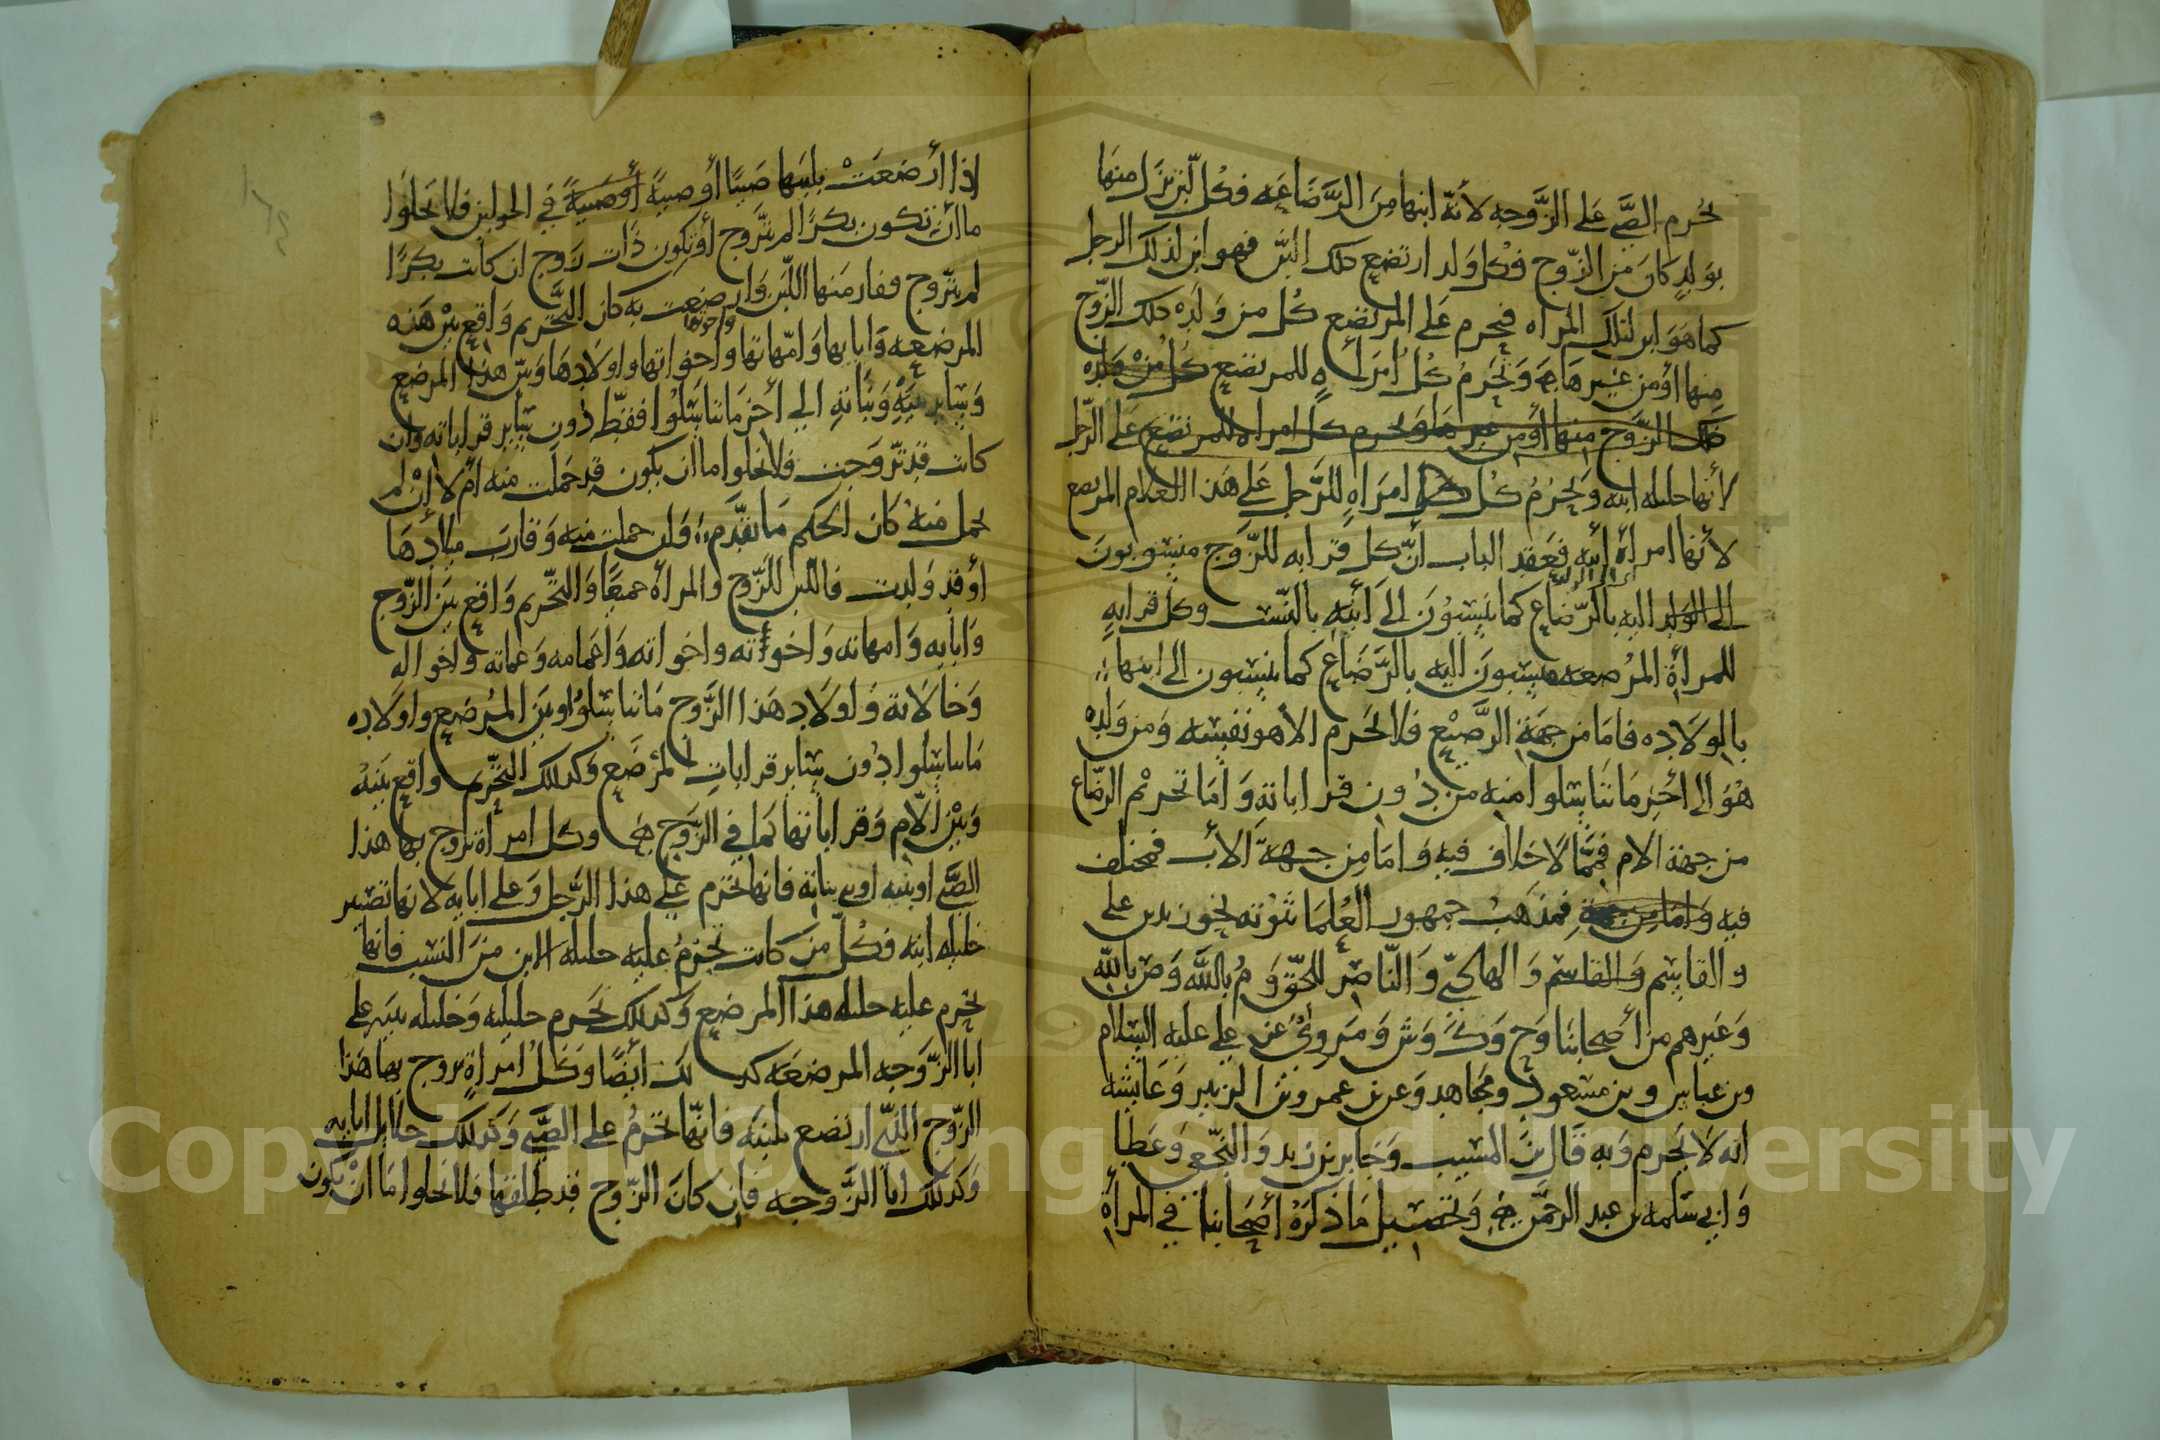 يحرم الصبي على الزوجه لأنه ابنها من الرضاعه فكل لبن نزل منها
بولد كان من الزوج فكل ولد ارتضع ذلك اللبن فهو ابن لذلك الرجل
كما هو ابن لتلك المراه فيحرم على المرتضع كل من ولده ذلك الزوج
منها أو من غيرها وتحرم كل امرأةٍ للمرتضع كل من ولده
ذلك الزوج منها أو من غيرها ويحرم كل امراه للمرتضع على الرجل
لأنها حليله ابنه ويحرم كل امراةٍ للرجل على هذا الغلام المرتضع
لأنها امرأة أبيه فعقد الباب أن كل قرابه للزوج منسوبون
إلى الولد اليه بالرضاع كما ينسبون إلى أبنه بالنسب وكل قرابهٍ
للمرأة المرضعه منسبون اليه بالرضاع كما ينسبون إلى ابنها
بالولاده فاما من جهة الرضيع فلا تحرم الا هو نفسه ومن ولده
هو الى اخر ما تناسلوا منه من دون قراباته وأما تحريم الرضاع
من جهة الام فمما لا خلاف فيه واما من جهة الأب فمختلف
فيه واما من جهة فمذهب جمهور العلما ثبوته نحو زيد بن علي
والقاسم والقاسم والهادي والناصر للحق و م بالله و ص بالله
وغيرهم من أصحابنا وح وك وش ومروي عن علي عليه السلام
وبن عباس وبن مسعود ومجاهد وعن بن عمر وبن الزبير وعايشه
انه لا يحرم وبه قال بن المسيب وجابر بن زيد والنخعي وعطا
وابي سلمه بن عبد الرحمن وتحصيل ما ذكره أصحابنا في المرأة
إذا أرضعت بلبنها صبيا أو صبيةً أو صبيةً في الحولين فلا تخلوا
ما أن تكون بكرًا لم تتزوج أو تكون ذات زوج ان كانت بكرًا
لم تتزوج ففار منها اللبن وارضعت به كان التحريم واقع بين هذه
المرضعه وابايها وامهاتها واخواتها واولادها وبين هذا المرضع
واخوتها
وبين بنيه وبناته الى أخر ما تناسلوا فقط دون ساير قراباته وان
كانت قد تزوجت فلا تخلوا اما ان يكون قد حملت منه أم لا إن لم
تحمل منه كان الحكم ما تقدم وان حملت منه وقارب ميلادها
أو قد ولدت فاللبن للزوج والمرأة جميعًا والتحريم واقع بين الزوج
وابايه وامهاته واخوته واخواته واعمامه وعماته واخواله
وخالاته واولاد هذا الزوج ما تناسلوا وبين المرضع واولاده
ما تناسلوا دون ساير قرابات المرضع وكذلك التحريم واقع بينه
وبين الام وقراباتها كما في الزوج وكل امرأة تزوج بها هذا
الصبي او بنيه او بني بناته فانها تحرم على هذا الرجل وعلى ابايه لانها تصير
حليله ابنه فكل من كانت تحرم عليه حليله الابن من النسب فانها
تحرم عليه حليله هذا المرضع وكذلك تحرم حليلته وحليله بنيه على
ابا الزوجه المرضعه كذلك أيضًا وكل امرأةٍ تزوج بها هذا
الزوج الذي ارتضع بلبنه فانها تحرم على الصبي وكذلك حلايل ابايه
وكذلك ابا الزوجه فان كان الزوج قد طلقها فلا تخلوا اما ان يكون
Copyright © King Saud University